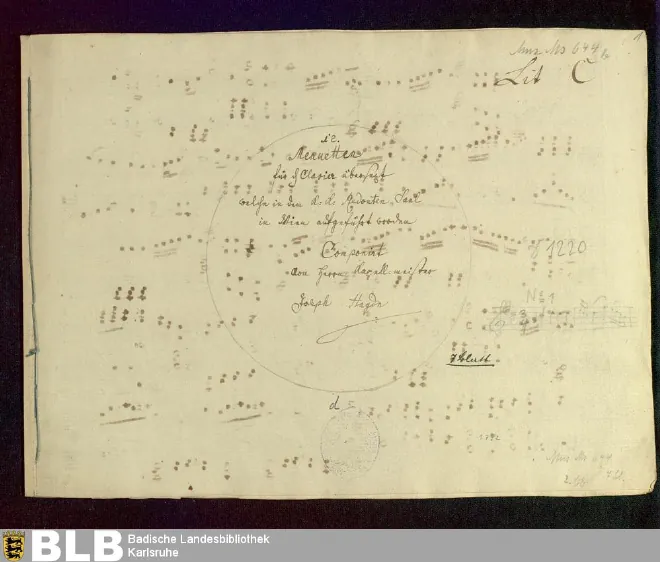 Mus. Ms 644
Lit C
12.
Menuetten
für's Clavier übersezt
welche in den k: k: Redouten Saal
in Wien aufgeführt worden
Componirt
von Herrn Kapellmeister
Joseph Haydn
1220
No 1
3/4
7 Blatt
d
1792
Mus. Ms 644
BLB Badische Landesbibliothek
Karlsruhe